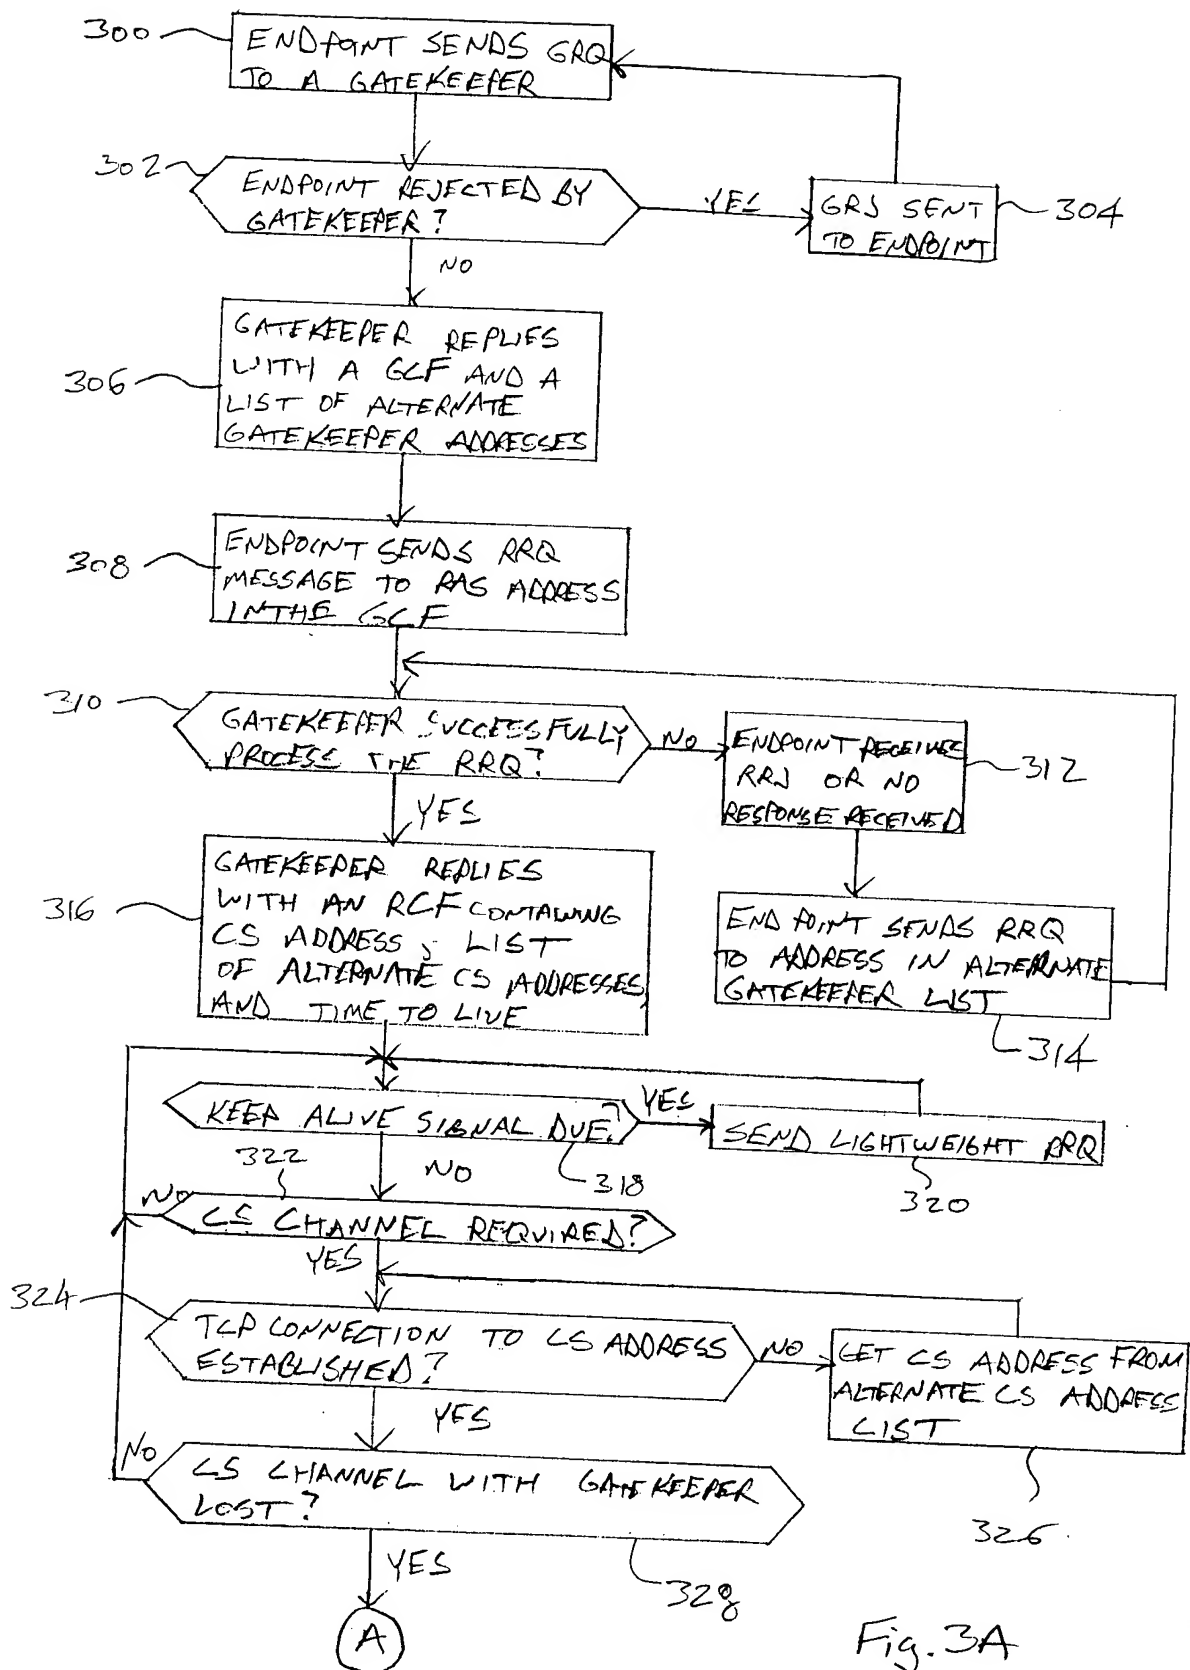 300
ENDPOINT SENDS GRQ
TO A GATEKEEPER
302
ENDPOINT REJECTED BY
GATEKEEPER?
YES
GRJ SENT
TO ENDPOINT
304
NO
306
GATEKEEPER REPLIES
WITH A GCF AND A
LIST OF ALTERNATE
GATEKEEPER ADDRESSES
308
ENDPOINT SENDS RRQ
MESSAGE TO RAS ADDRESS
IN THE GCF
310
GATEKEEPER SUCCESSFULLY
PROCESS THE RRQ?
NO
ENDPOINT RECEIVES
RRJ OR NO
RESPONSE RECEIVED
312
YES
316
GATEKEEPER REPLIES
WITH AN RCF CONTAINING
CS ADDRESS, LIST
OF ALTERNATE CS ADDRESSES
AND TIME TO LIVE
ENDPOINT SENDS RRQ
TO ADDRESS IN ALTERNATE
GATEKEEPER LIST
314
KEEP ALIVE SIGNAL DUE?
YES
SEND LIGHTWEIGHT RRQ
318
320
NO
322
NO
CS CHANNEL REQUIRED?
YES
324
TCP CONNECTION TO CS ADDRESS
ESTABLISHED?
NO
GET CS ADDRESS FROM
ALTERNATE CS ADDRESS
LIST
326
YES
NO
CS CHANNEL WITH GATEKEEPER
LOST?
328
YES
A
Fig. 3A